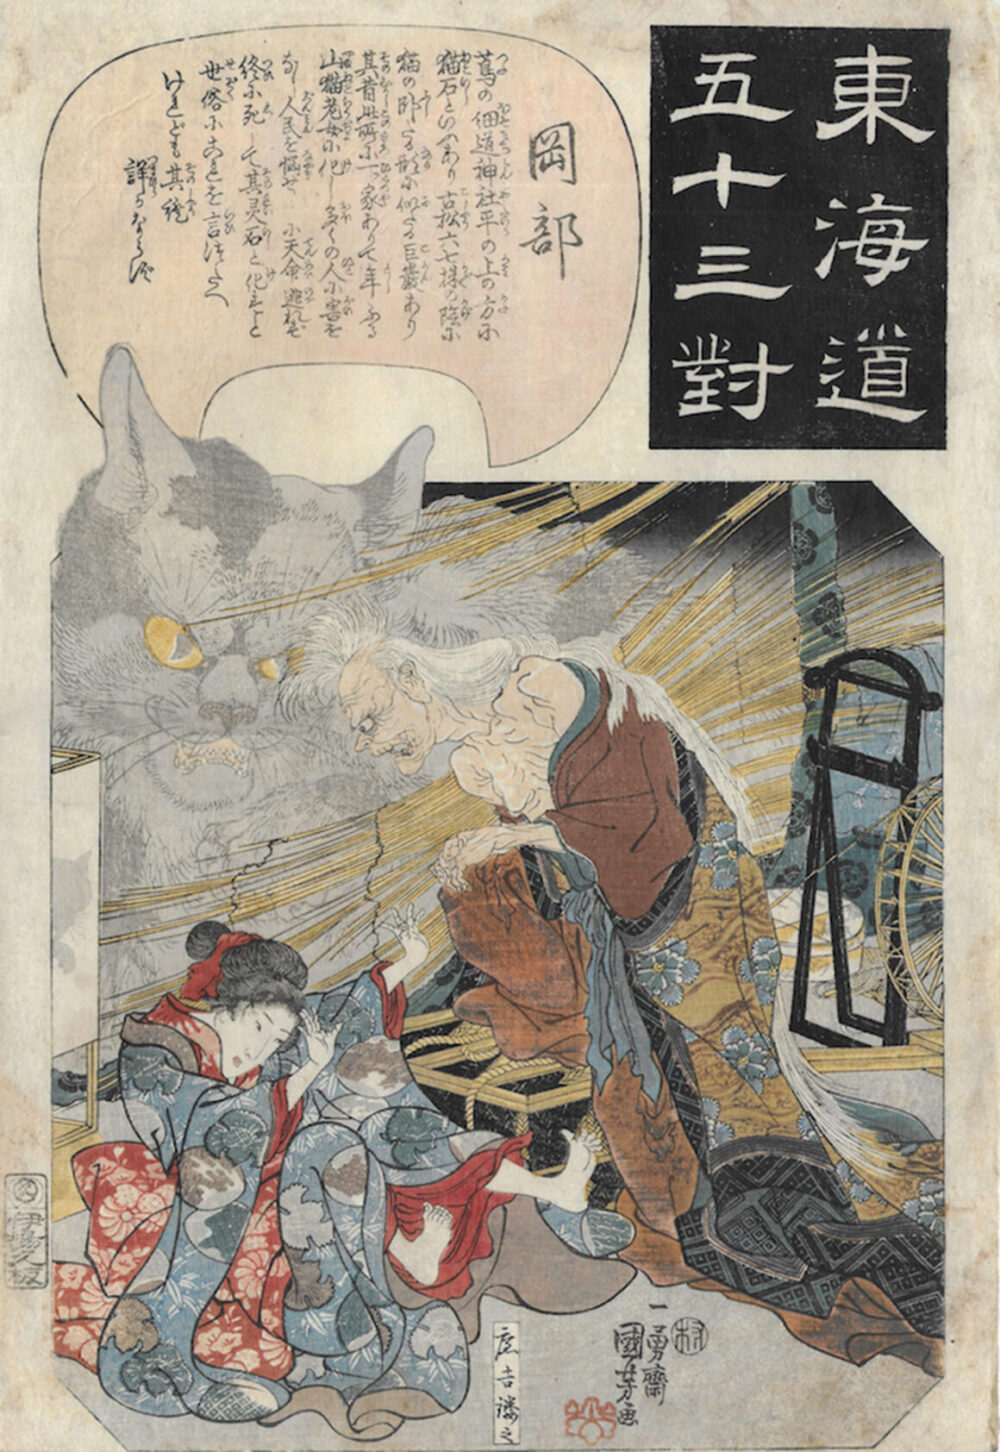 東海道
五十三對
岡部
蔦の細道神社平の上の方に
猫石といふあり古松六七株の陰に
猫の臥たる形に似たる巨巌あり
其昔此所に一ツ家ありて年ふる
山猫老女に化し多くの人に害を
なし人民を悩せしに天命遁れず
終に死して其灵石と化すと
世俗にこれを言つたへ
けれども其説
詳ならず
一勇齋
國芳画
村
庄吉鏤之
伊場久板